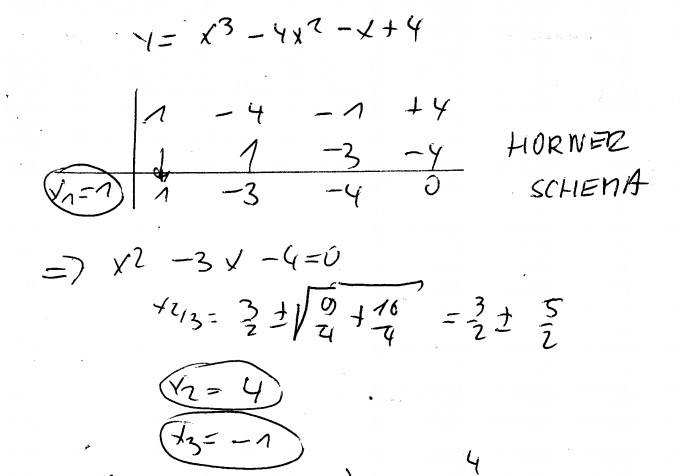 y = x³ - 4x² - x + 4
1 - 4 - 1 + 4
1 - 3 - 4 HORNER
x₁=1 1 - 3 - 4 0 SCHEMA
=> x² - 3x - 4 = 0
x₂/₃ = 3/2 ± √(9/4 + 16/4) = 3/2 ± 5/2
x₂ = 4
x₃ = - 1
4